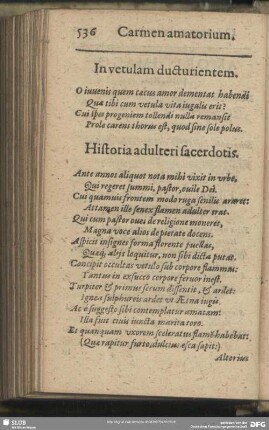 536 Carmen amatorium.
In vetulam ducturientem.
O iuvenis quem cæcus amor dementat habendi
Quæ tibi cum vetula vita iugalis erit?
Cui spes progeniem tollendi nulla remansit
Prole carens thorus est, quod sine sole polus.
Historia adulteri sacerdotis.
Ante annos aliquot nota mihi vixit in urbe,
Qui regeret summi, pastor, ovile Dei.
Cui quamuis frontem modo ruga senilis araret:
Attamen ille senex flamen adulter erat.
Qui cum pastor oues de religione moneret,
Magna voce alios de pietate docens.
Aspicit insignes forma florente puellas,
Quæq; alijs loquitur, non sibi dicta putat.
Concipit occultas vetulo sub corpore flammas:
Tantus in exsucco corpore fervor inest.
Turpiter & primus secum dissentit, & ardet:
Ignea sulphureis ardet ut Ætna iugis.
Ac è suggesto sibi contemplatur amatam:
Illa fuit civi iuncta marita toro.
Et quanquam uxorem sceleratus flamẽ habebat:
(Quæ rapitur furto, dulcius esca sapit:)
Alterius
SLUB
DFG